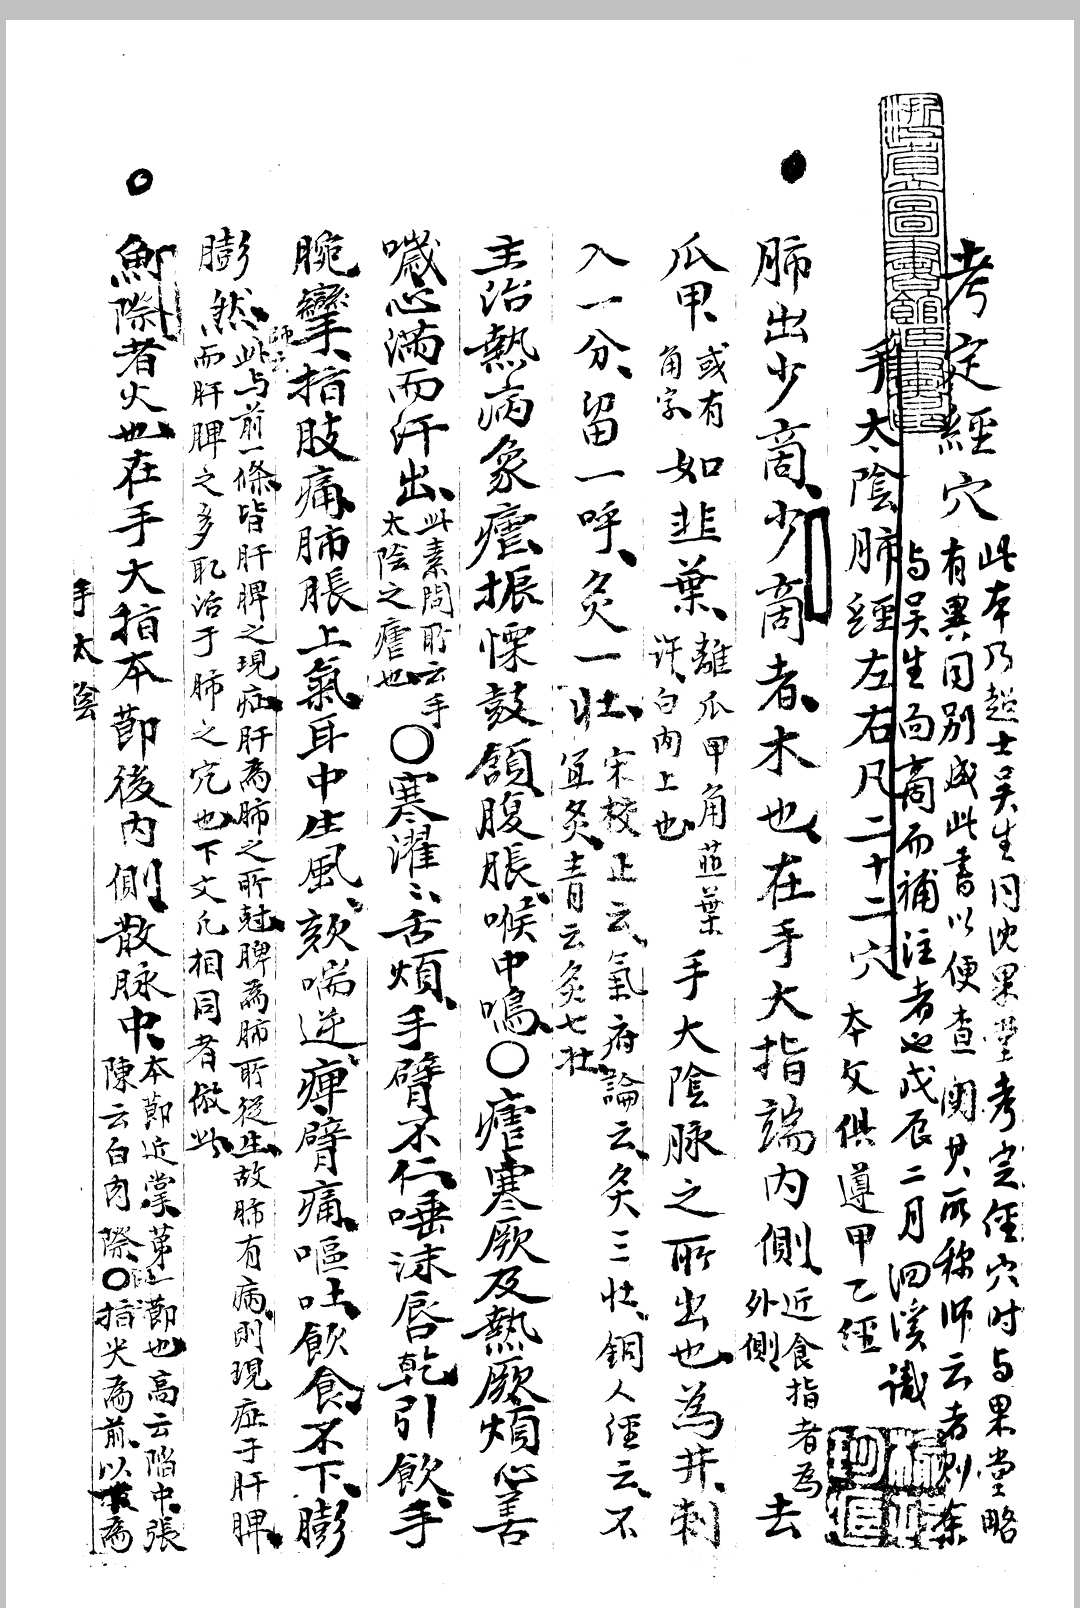 考定經穴
此本乃趙士吳生同沈果堂考定經穴时与果堂略
有異同別成此書以便查閱其所称师云者則
与吳生向而補注者也戊辰二月洄溪識
手太陰肺經左右凡二十二穴
本文俱遵甲乙經
肺出少商少商者木也在手大指端内側
近食指者為
外側
去
爪甲
或有
角字
如韭葉
離爪甲角韮葉
許白肉上也
手大陰脉之所出也為井刺
入一分留一呼灸一壯
宋校正云氣府論云灸三壯銅人經云不
宜灸青云灸七壯
主治熱病象瘧振慄鼓頷腹脹喉中鳴〇瘧寒厥及熱厥煩心善
噦心满而汗出
此素問所云手
太陰之瘧也
〇寒濯ミ舌煩手臂不仁唾沫唇乾引飲手
腕攣指肢痛肺脹上氣耳中生風欬喘逆痺臂痛嘔吐飲食不下膨
膨然
师云
此与前一條皆肝脾之現症肝為肺之所尅脾為肺所從生故肺有病則現症于肝脾
而肝脾之多取治于肺之穴也下文凡相同者倣此
魚際者火也在手大指本節後内側散脉中
本節近掌第一節也高云陷中張
陳云白肉際〇指尖為前以後為
手太陰